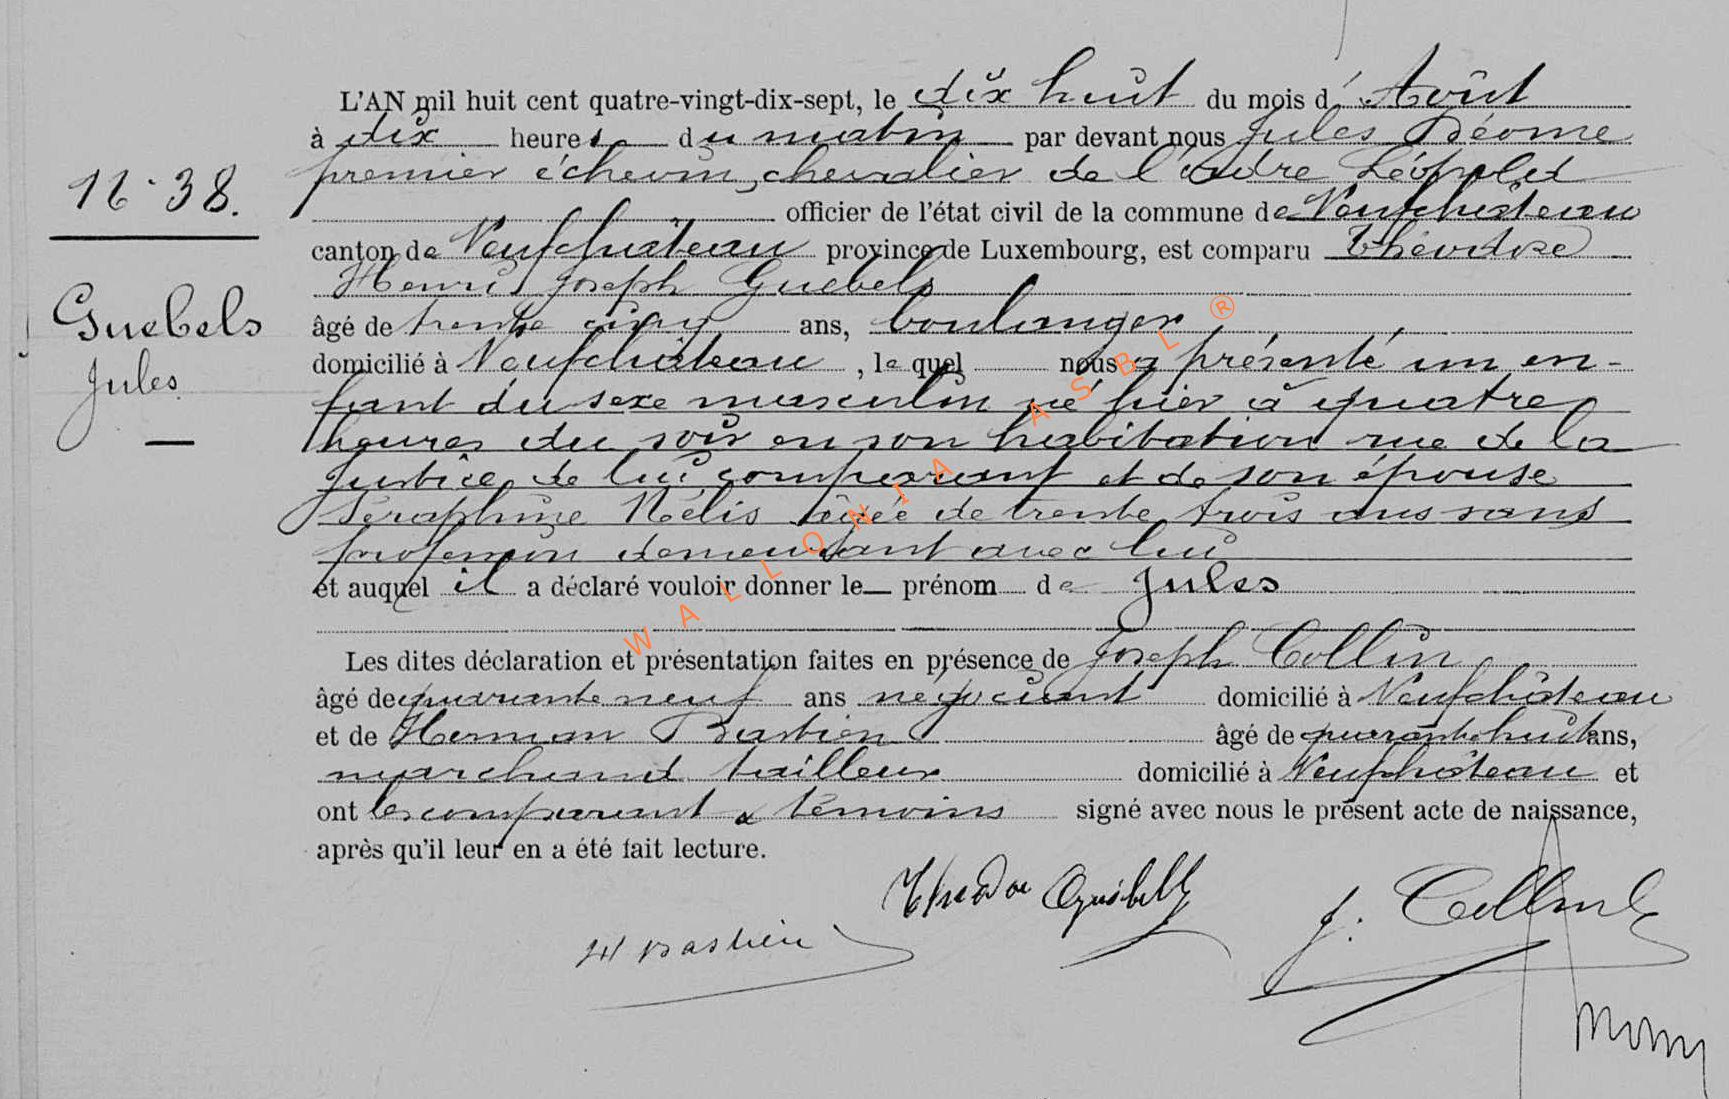 L'AN mil huit cent quatre-vingt-dix-sept, le dix huit du mois d' Août
à dix heures du matin par devant nous Jules Déome
premier échevin, chevalier de l'ordre Léopold
officier de l'état civil de la commune de Neufchâteau
N. 38.
canton de Neufchâteau province de Luxembourg, est comparu Théodore
Henri Joseph Guebels
Guebels
Jules
âgé de trente cinq ans, boulanger
domicilié à Neufchâteau, lequel nous a présenté un en-
fant du sexe masculin né hier à quatre
heures du soir en son habitation rue de la
Justice de lui comparant et de son épouse
Séraphine Nélis âgée de trente trois ans sans
profession demeurant avec lui
et auquel il a déclaré vouloir donner le prénom de Jules
Les dites déclaration et présentation faites en présence de Joseph Collin
âgé de quarante neuf ans négociant domicilié à Neufchâteau
et de Herman Bastien âgé de quarante huit ans,
marchand tailleur domicilié à Neufchâteau et
ont les comparant & témoins signé avec nous le présent acte de naissance,
après qu'il leur en a été fait lecture.
Theodor Guebels
J. Collin
H Bastien
WALLONIA ASBL ®